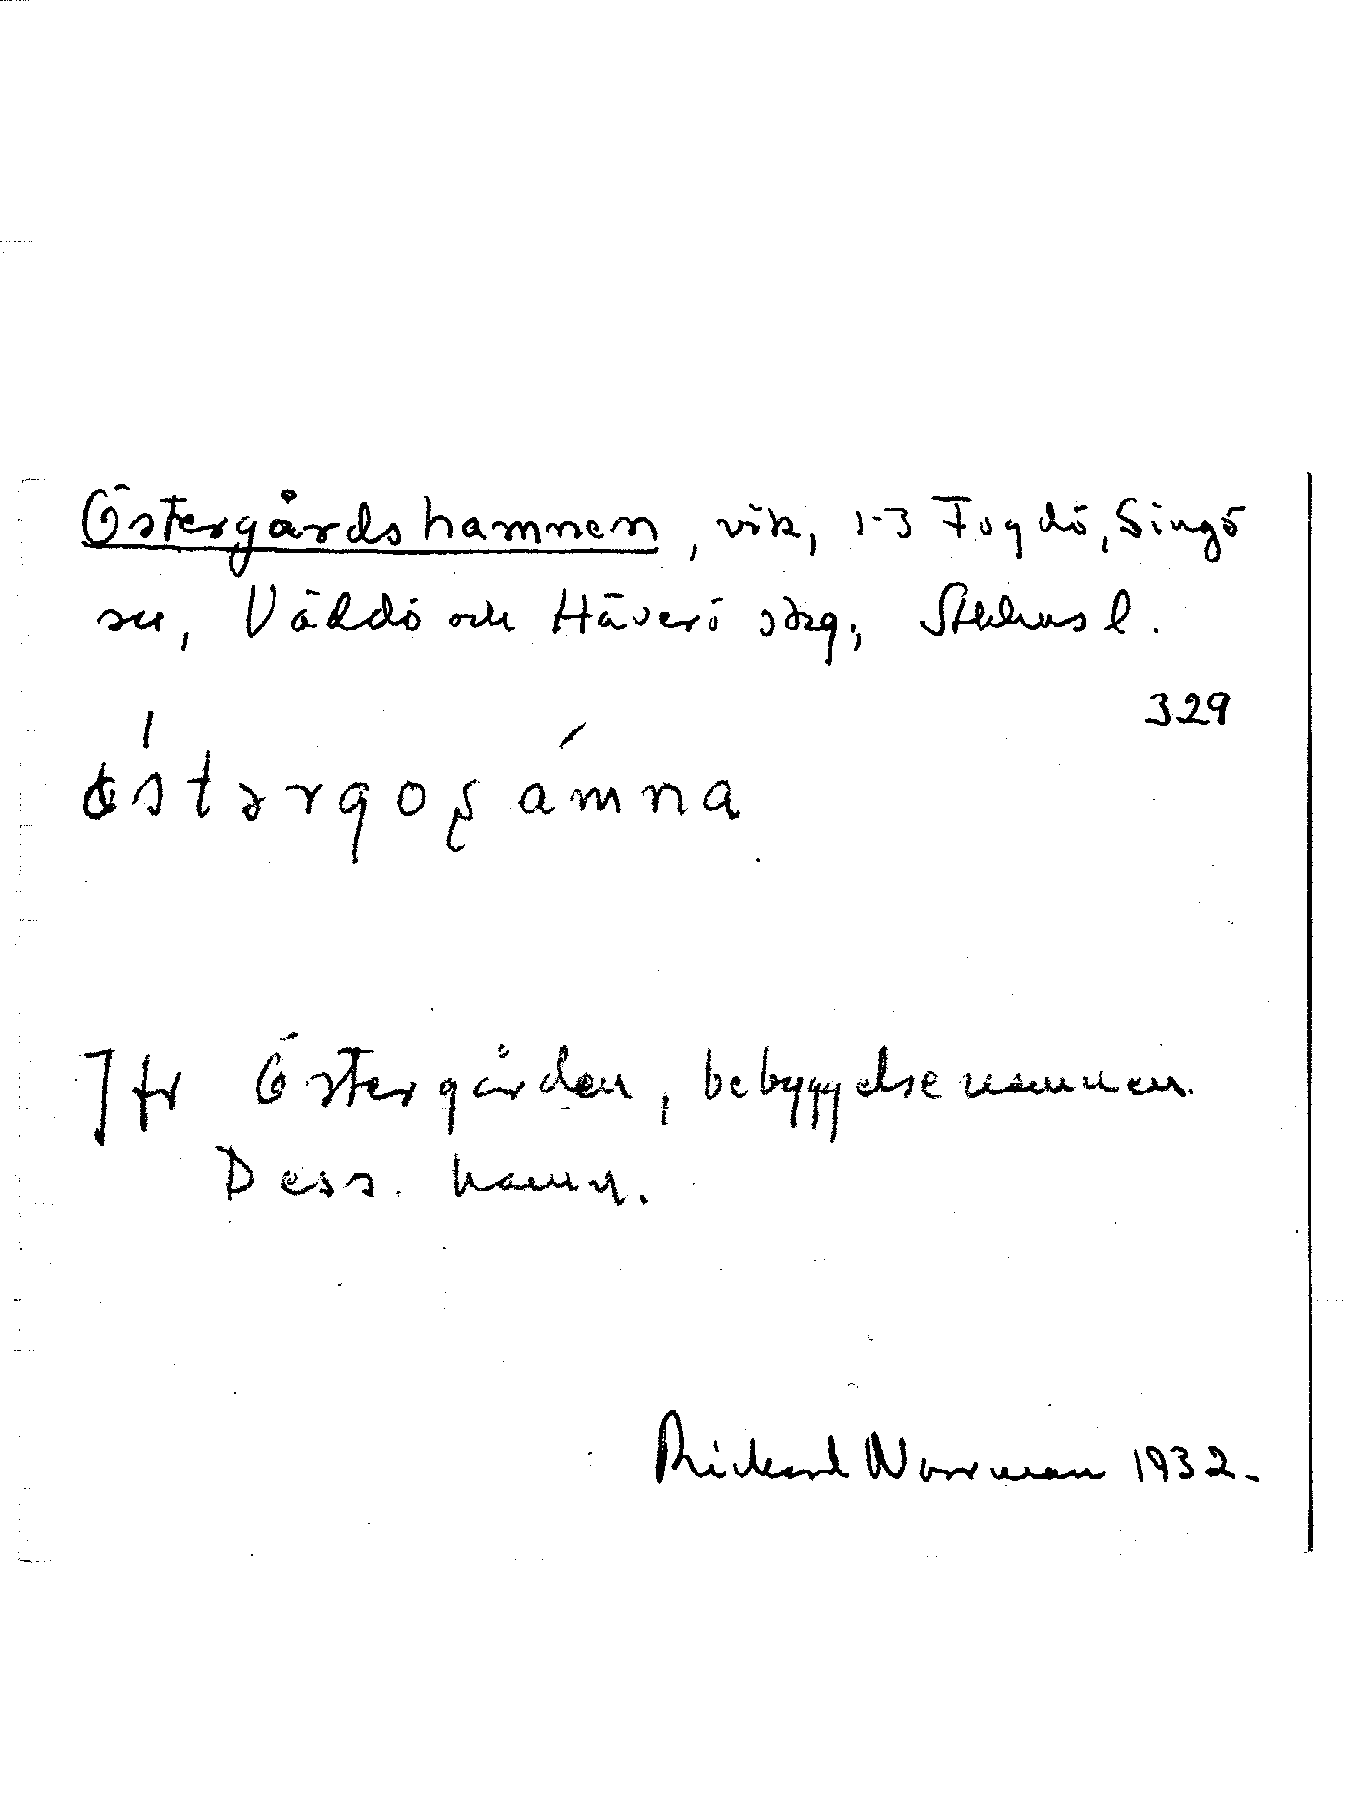 Östergårdshamnen, vik, 1-3 Fogdö, Singö
sn, Väddö och Häverö skg, Sthlms l.
329
östərgoʂamna
Jfr Östergården, bebyggelsenamnen.
Dess. hamn.
Rickard Norrman 1932.